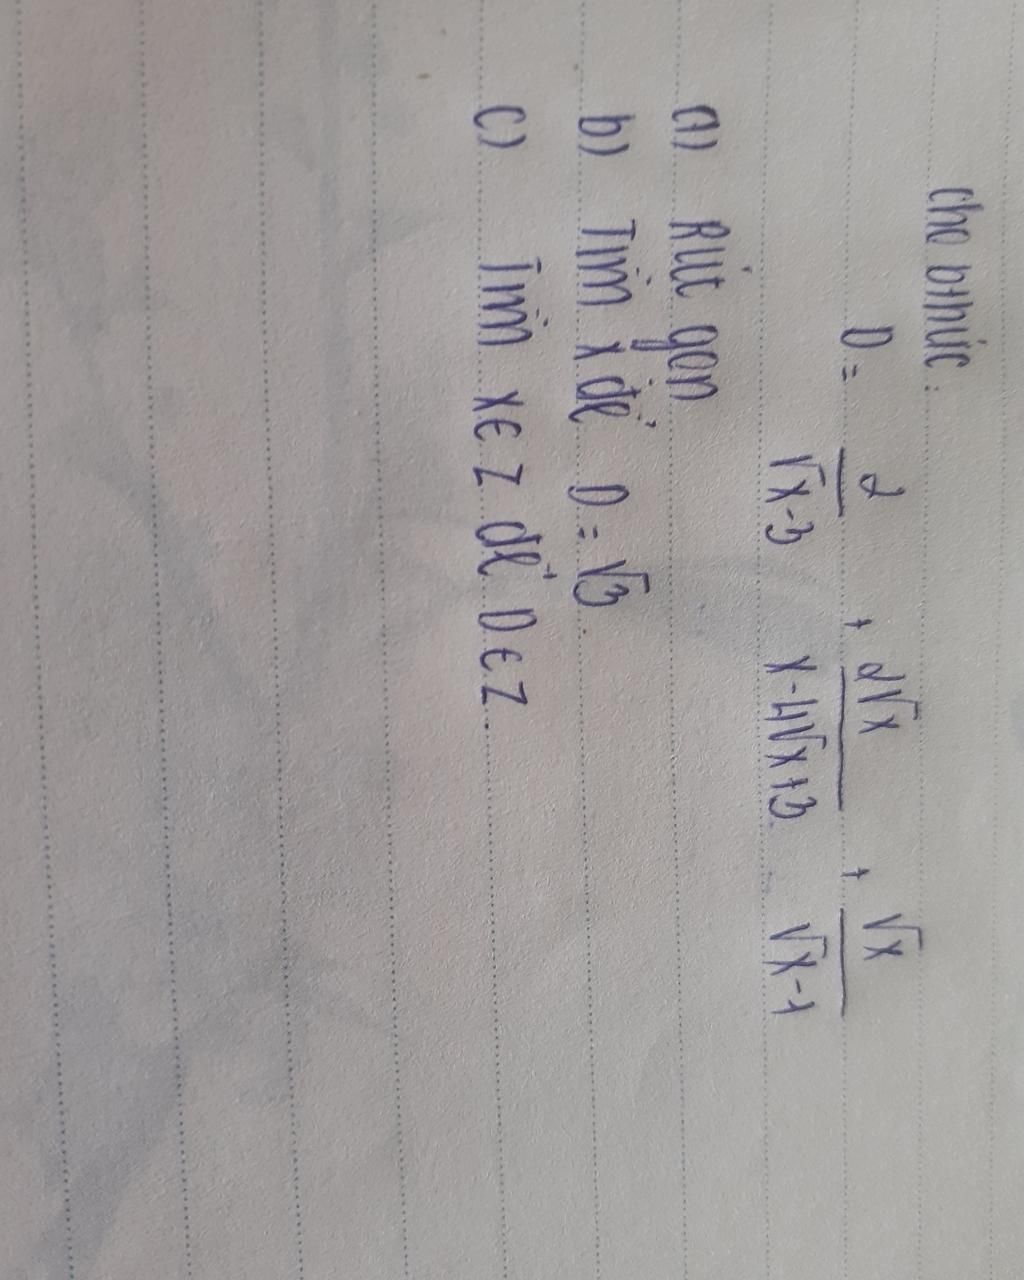 Cho bthức:
D = 2/(√x-3) + 2√x/(x-4√x+3) + √x/(√x-1)
a) Rút gọn
b) Tìm x để D = √3
c) Tìm x ∈ Z để D ∈ Z